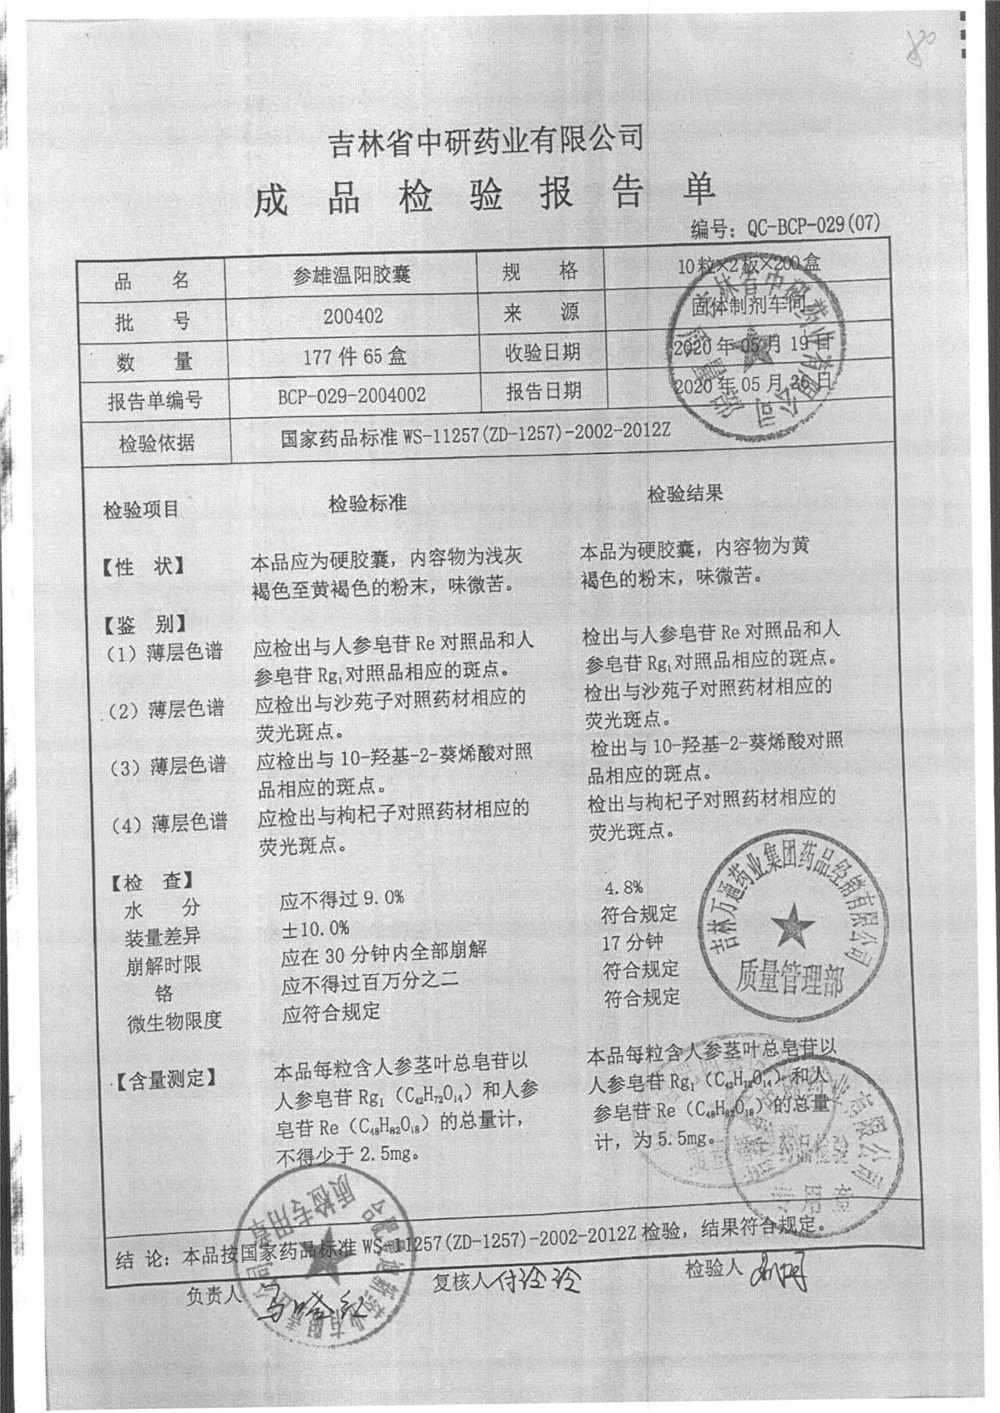 吉林省中研药业有限公司
成品检验报告单
编号：QC-BCP-029(07)
品 名 参雄温阳胶囊 规 格 10粒×2板×200盒
批 号 200402 来 源 固体制剂车间
数 量 177件65盒 收验日期 2020年05月19日
报告单编号 BCP-029-2004002 报告日期 2020年05月26日
检验依据 国家药品标准WS-11257(ZD-1257)-2002-2012Z
检验项目 检验标准 检验结果
【性 状】 本品应为硬胶囊，内容物为浅灰 本品为硬胶囊，内容物为黄
褐色至黄褐色的粉末，味微苦。 褐色的粉末，味微苦。
【鉴 别】
（1）薄层色谱 应检出与人参皂苷Re对照品和人 检出与人参皂苷Re对照品和人
参皂苷Rg₁对照品相应的斑点。 参皂苷Rg₁对照品相应的斑点。
（2）薄层色谱 应检出与沙苑子对照药材相应的 检出与沙苑子对照药材相应的
荧光斑点。 荧光斑点。
（3）薄层色谱 应检出与10-羟基-2-葵烯酸对照 检出与10-羟基-2-葵烯酸对照
品相应的斑点。 品相应的斑点。
（4）薄层色谱 应检出与枸杞子对照药材相应的 检出与枸杞子对照药材相应的
荧光斑点。 荧光斑点。
【检 查】
水 分 应不得过9.0% 4.8%
装量差异 ±10.0% 符合规定
崩解时限 应在30分钟内全部崩解 17分钟
铬 应不得过百万分之二 符合规定
微生物限度 应符合规定 符合规定
吉林万通药业集团药品经销有限公司
质量管理部
【含量测定】 本品每粒含人参茎叶总皂苷以 本品每粒含人参茎叶总皂苷以
人参皂苷Rg₁（C₄₂H₇₂O₁₄）和人参 人参皂苷Rg₁（C₄₂H₇₂O₁₄）和人
皂苷Re（C₄₈H₈₂O₁₈）的总量计， 参皂苷Re（C₄₈H₈₂O₁₈）的总量
不得少于2.5mg。 计，为5.5mg。
结 论：本品按国家药品标准WS-11257(ZD-1257)-2002-2012Z检验，结果符合规定。
负责人 复核人 付玲玲 检验人
质检专用章